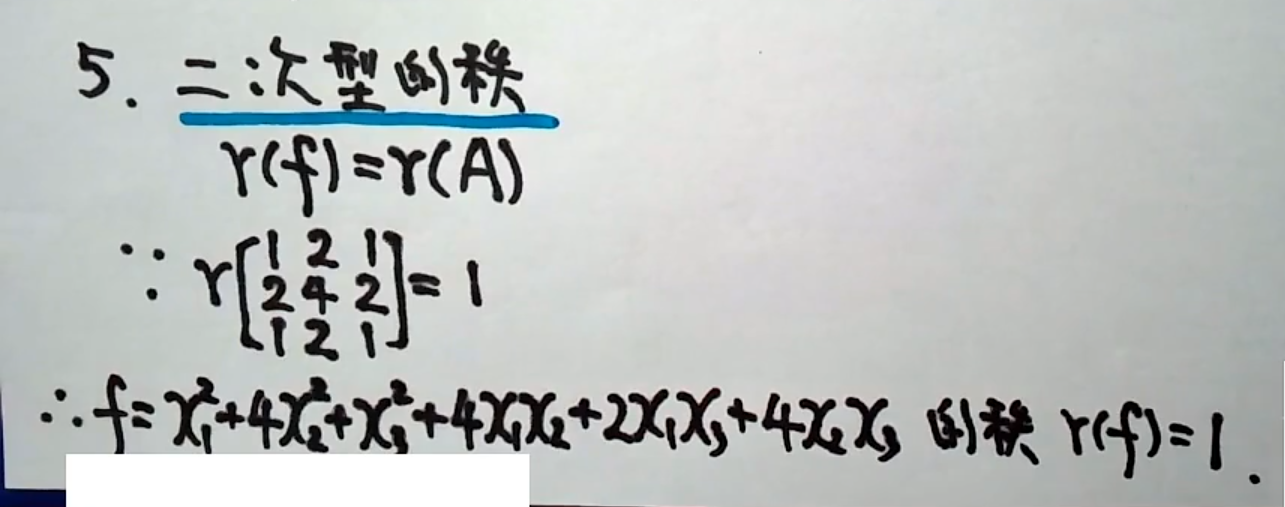 5. 二次型的秩
r(f)=r(A)
∵ r[1 2 1
2 4 2
1 2 1]=1
∴ f=x₁²+4x₂²+x₃²+4x₁x₂+2x₁x₃+4x₂x₃ 的秩 r(f)=1.